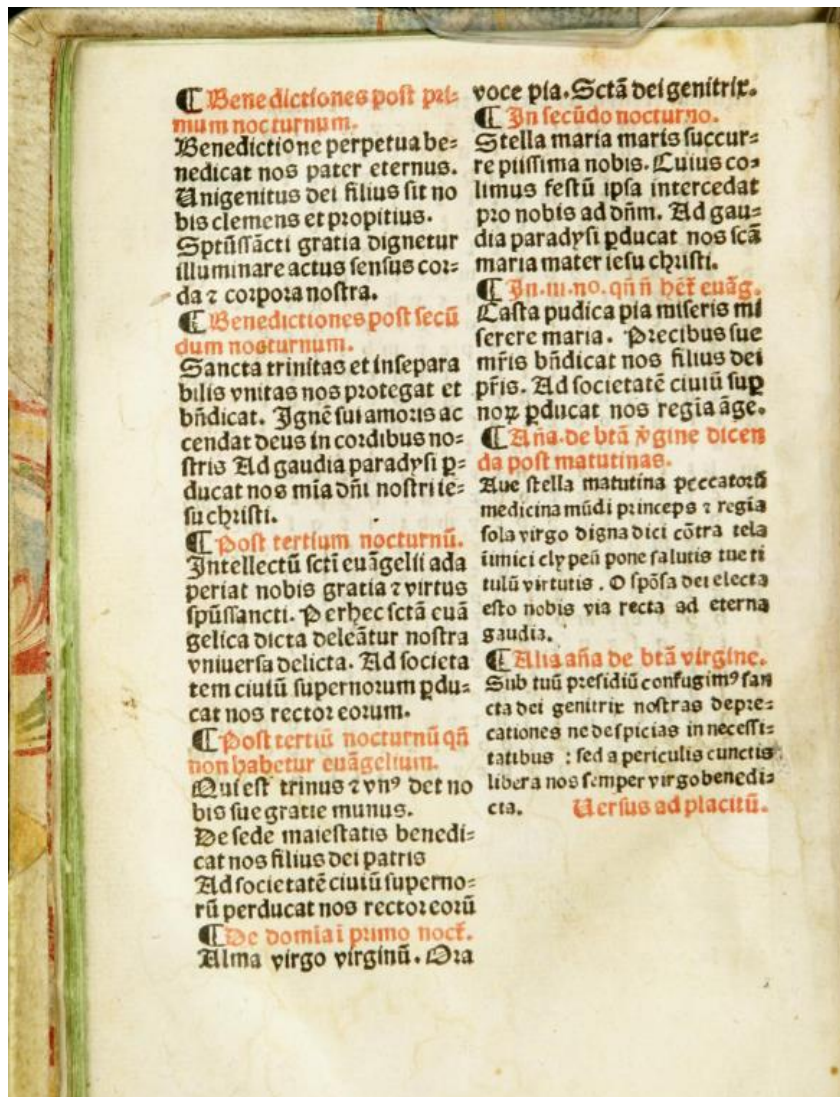 ¶ Benedictiones post pri⸗
mum nocturnum.
Benedictione perpetua be⸗
nedicat nos pater eternus.
Unigenitus dei filius sit no
bis clemens et propitius.
Sptūssācti gratia dignetur
illuminare actus sensus cor⸗
da ⁊ corpora nostra.
¶ Benedictiones post secū
dum nocturnum.
Sancta trinitas et insepara
bilis vnitas nos protegat et
bñdicat. Ignē sui amoris ac
cendat deus in cordibus no⸗
stris Ad gaudia paradysi ꝑ⸗
ducat nos mīa dñi nostri ie⸗
su christi.
¶ Post tertium nocturnū.
Intellectū sctī euāgelii ada
periat nobis gratia ⁊ virtus
spūssancti. Per hec sctā euā
gelica dicta deleātur nostra
vniuersa delicta. Ad societa
tem ciuiū supernorum ꝑdu⸗
cat nos rector eorum.
¶ Post tertiū nocturnū qñ
non habetur euāgelium.
Qui est trinus ⁊ vnꝰ det no
bis sue gratie munus.
De sede maiestatis benedi⸗
cat nos filius dei patris
Ad societatē ciuiū superno⸗
rū perducat nos rector eorū
¶ De domīa ī primo noct̄.
Alma virgo virginū. Ora
voce pia. Sctā dei genitrix.
¶ In secūdo nocturno.
Stella maria maris succur⸗
re piissima nobis. Cuius co⸗
limus festū ipsa intercedat
pro nobis ad dñm. Ad gau⸗
dia paradysi ꝑducat nos scā
maria mater iesu christi.
¶ In .iii. no. qñ ñ het̄ euāg.
Casta pudica pia miseris mi
serere maria. Precibus sue
mr̄is bñdicat nos filius dei
pr̄is. Ad societatē ciuiū suꝑ
noꝝ ꝑducat nos regīa āge.
¶ Aña. de btā v̄gine dicen
da post matutinas.
Aue stella matutina peccatorū
medicina mūdi princeps ⁊ regīa
sola virgo digna dici cōtra tela
īimici clypeū pone salutis tue ti
tulū virtutis. O spōsa dei electa
esto nobis via recta ad eterna
gaudia.
¶ Alia aña de btā virgine.
Sub tuū presidiū confugimꝰ san
cta dei genitrix nostras depre⸗
cationes ne despicias in necessi⸗
tatibus : sed a periculis cunctis
libera nos semper virgo benedi⸗
cta. Uersus ad placitū.